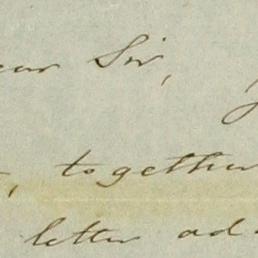 ear Sir,
, together
letter ad